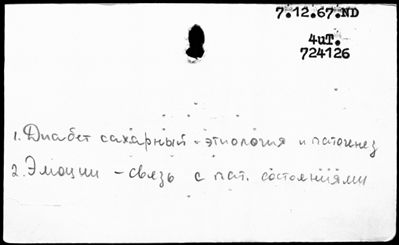 7.12.67.ND
4иТ.
724126
1. Диабет сахарный - этиология и патогенез
2. Эмоции - связь с пат. состояниями